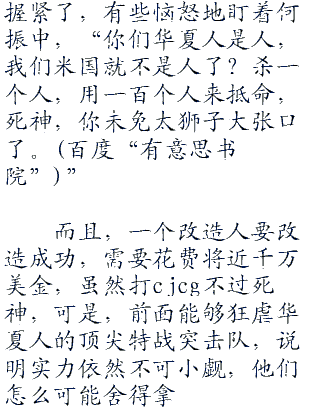 握紧了，有些恼怒地盯着何
振中，“你们华夏人是人，
我们米国就不是人了？杀一
个人，用一百个人来抵命，
死神，你未免太狮子大张口
了。(百度“有意思书
院”)”
而且，一个改造人要改
造成功，需要花费将近千万
美金，虽然打cjcg不过死
神，可是，前面能够狂虐华
夏人的顶尖特战突击队，说
明实力依然不可小觑，他们
怎么可能舍得拿